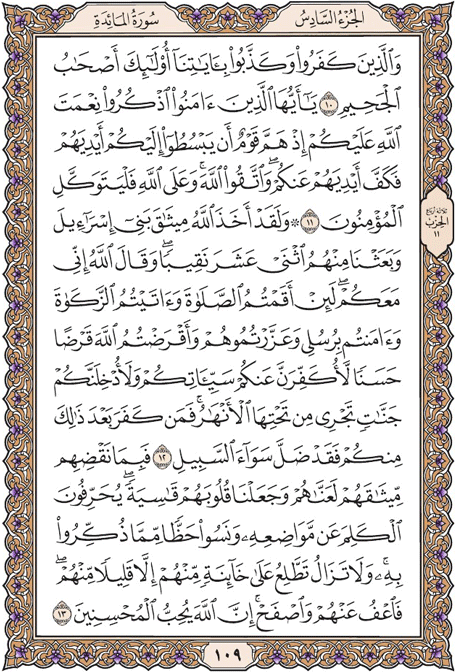 الجزء السادس
سورة المائدة
وَٱلَّذِينَ كَفَرُواْ وَكَذَّبُواْ بِـَٔايَٰتِنَآ أُوْلَٰٓئِكَ أَصْحَٰبُ
ٱلْجَحِيمِ ١٠ يَٰٓأَيُّهَا ٱلَّذِينَ ءَامَنُواْ ٱذْكُرُواْ نِعْمَتَ
ٱللَّهِ عَلَيْكُمْ إِذْ هَمَّ قَوْمٌ أَن يَبْسُطُوٓاْ إِلَيْكُمْ أَيْدِيَهُمْ
فَكَفَّ أَيْدِيَهُمْ عَنكُمْۖ وَٱتَّقُواْ ٱللَّهَۚ وَعَلَى ٱللَّهِ فَلْيَتَوَكَّلِ
ٱلْمُؤْمِنُونَ ١١ ۞ وَلَقَدْ أَخَذَ ٱللَّهُ مِيثَٰقَ بَنِيٓ إِسْرَٰٓءِيلَ
وَبَعَثْنَا مِنْهُمُ ٱثْنَيْ عَشَرَ نَقِيبًاۖ وَقَالَ ٱللَّهُ إِنِّي
مَعَكُمْۖ لَئِنْ أَقَمْتُمُ ٱلصَّلَوٰةَ وَءَاتَيْتُمُ ٱلزَّكَوٰةَ
وَءَامَنتُم بِرُسُلِي وَعَزَّرْتُمُوهُمْ وَأَقْرَضْتُمُ ٱللَّهَ قَرْضًا
حَسَنًا لَّأُكَفِّرَنَّ عَنكُمْ سَيِّـَٔاتِكُمْ وَلَأُدْخِلَنَّكُمْ
جَنَّٰتٍ تَجْرِي مِن تَحْتِهَا ٱلْأَنْهَٰرُۚ فَمَن كَفَرَ بَعْدَ ذَٰلِكَ
مِنكُمْ فَقَدْ ضَلَّ سَوَآءَ ٱلسَّبِيلِ ١٢ فَبِمَا نَقْضِهِم
مِّيثَٰقَهُمْ لَعَنَّٰهُمْ وَجَعَلْنَا قُلُوبَهُمْ قَٰسِيَةًۖ يُحَرِّفُونَ
ٱلْكَلِمَ عَن مَّوَاضِعِهِۦ وَنَسُواْ حَظًّا مِّمَّا ذُكِّرُواْ
بِهِۦۚ وَلَا تَزَالُ تَطَّلِعُ عَلَىٰ خَآئِنَةٍ مِّنْهُمْ إِلَّا قَلِيلًا مِّنْهُمْۖ
فَٱعْفُ عَنْهُمْ وَٱصْفَحْۚ إِنَّ ٱللَّهَ يُحِبُّ ٱلْمُحْسِنِينَ ١٣
ثلاثة أرباع
الحزب
١١
١٠٩